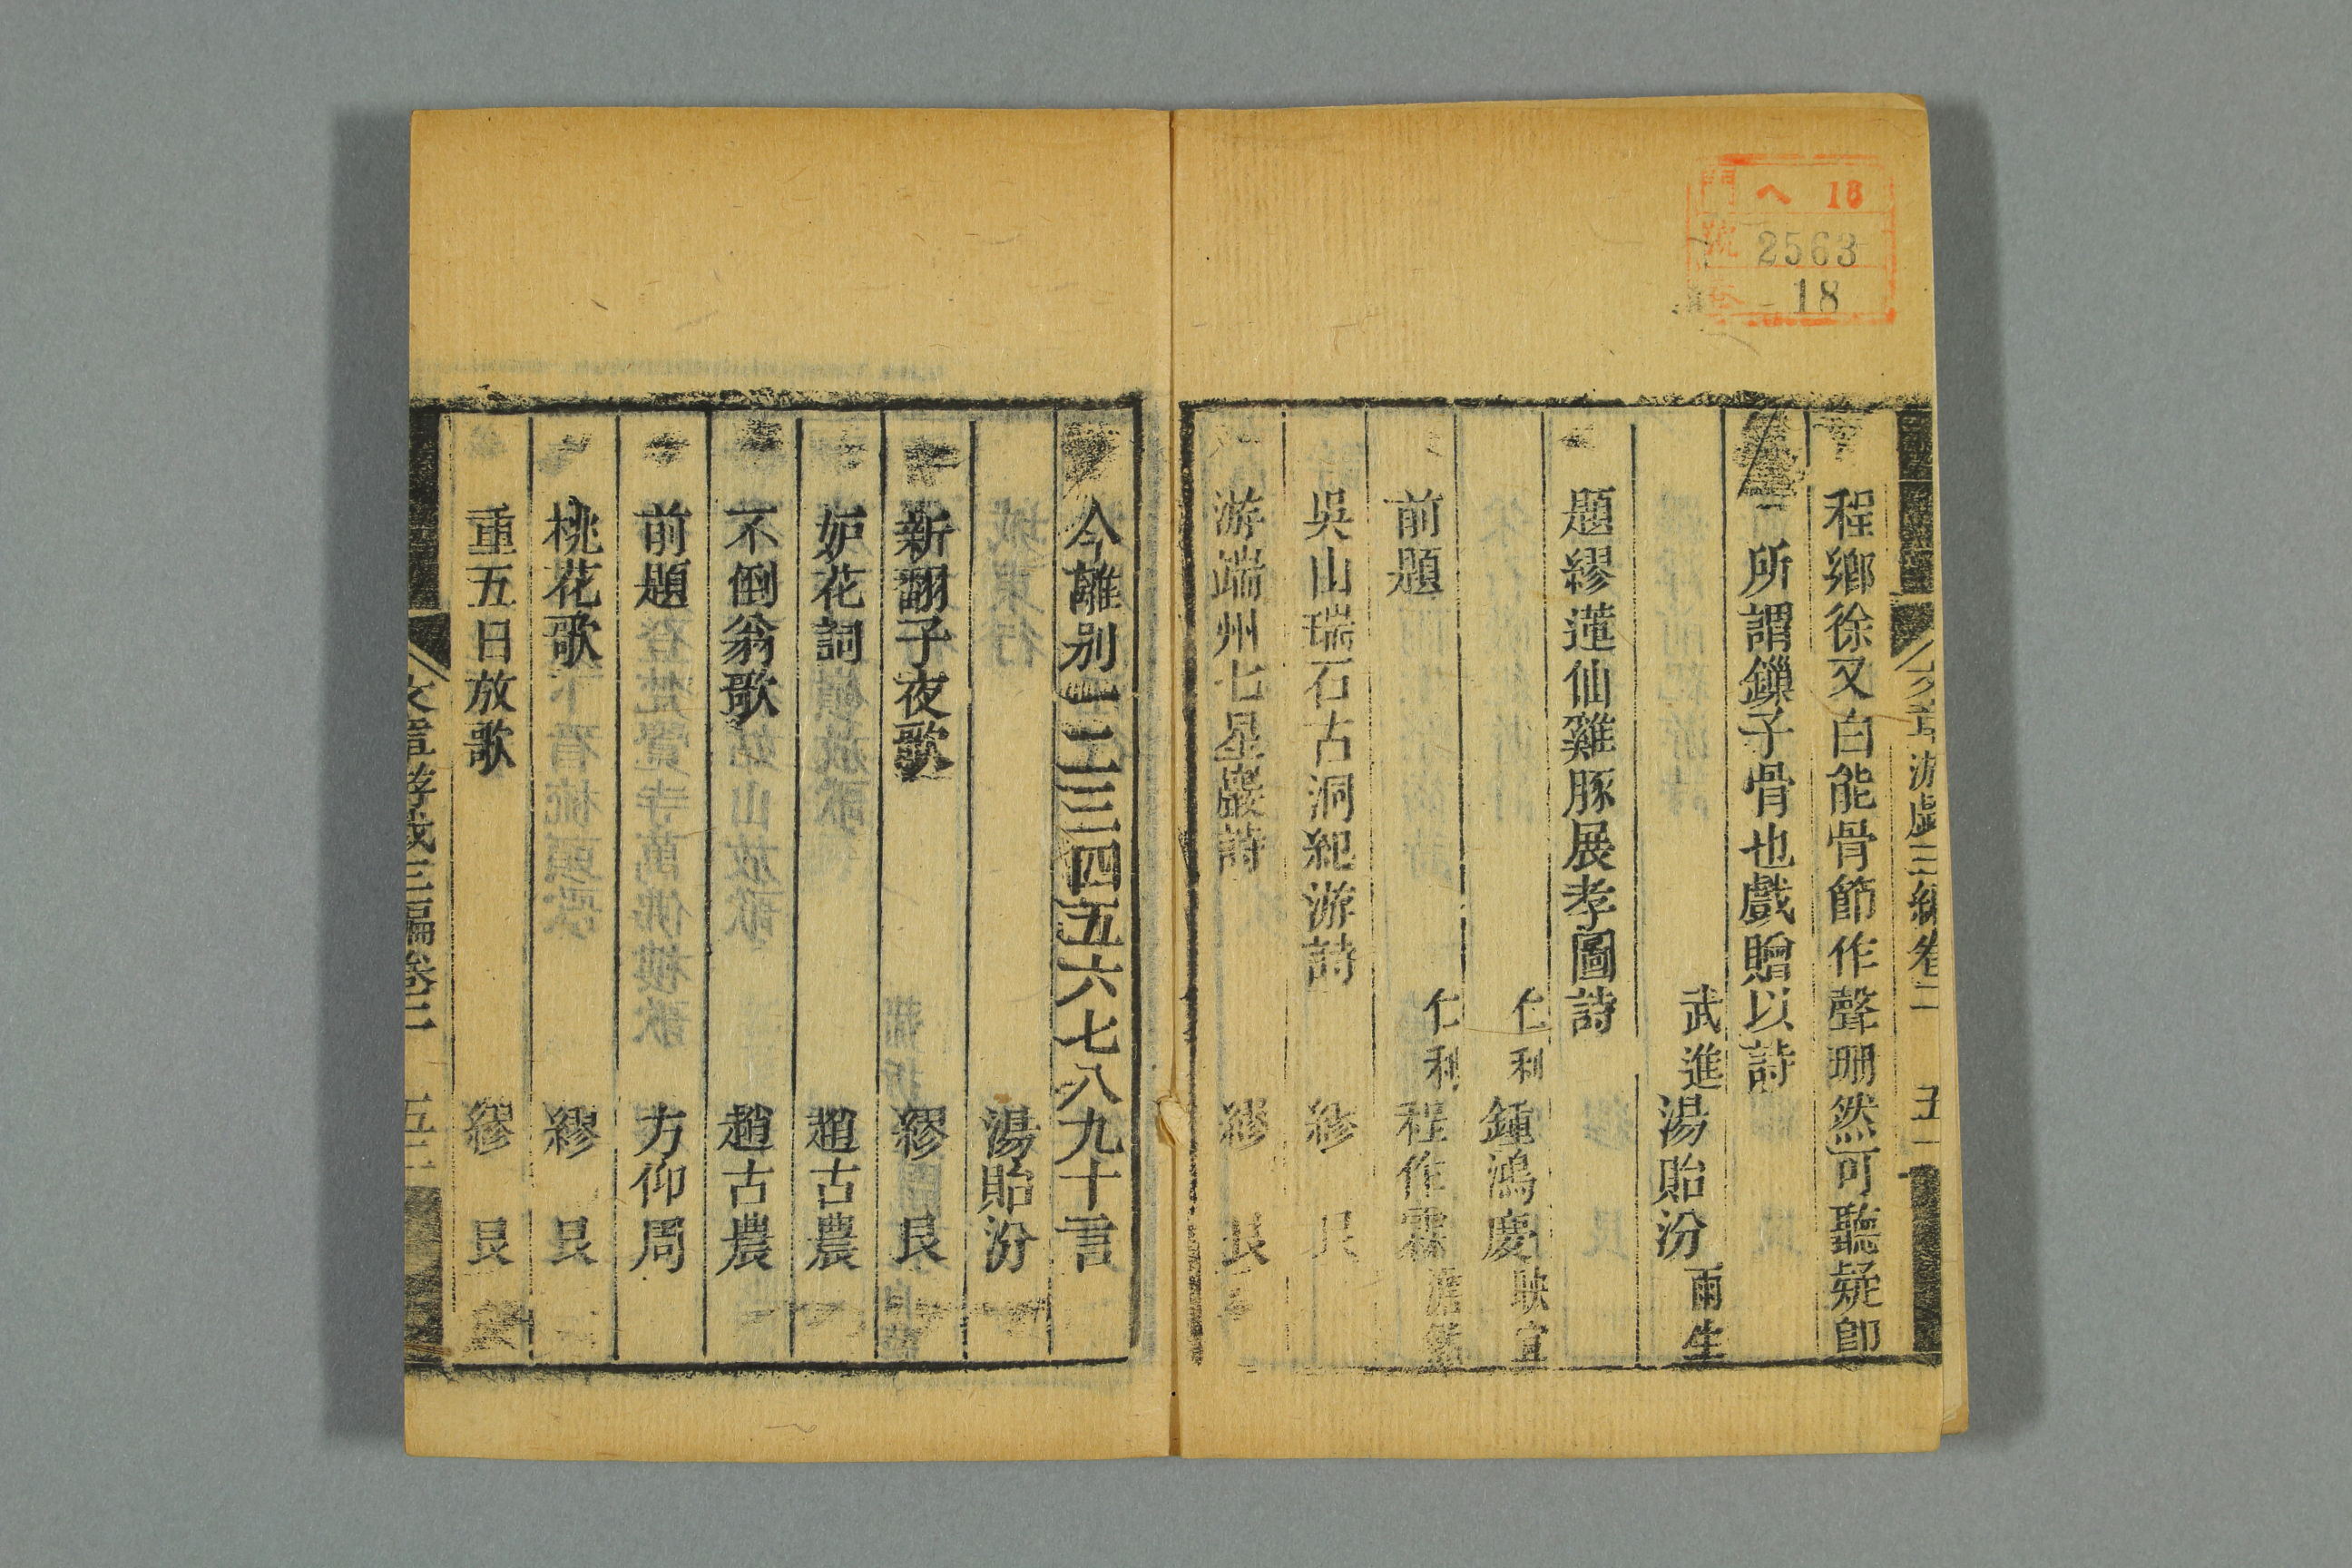 門 ヘ 18
號 2563
卷 18
程鄉徐又白能骨節作聲珊然可聽疑卽
所謂鏁子骨也戲贈以詩
武進 湯貽汾 雨生
題繆蓮仙雞豚展孝圖詩
仁和 鍾鴻慶 映宜
前題 仁和 程作霖 澹然
吳山瑞石古洞紀游詩 繆 艮
游端州七星巖詩 繆 艮
今離别一二三四五六七八九十言
湯貽汾
新翻子夜歌 繆 艮
妒花詞 趙古農
不倒翁歌 趙古農
前題 方仰周
桃花歌 繆 艮
重五日放歌 繆 艮
文章游戲三編卷二